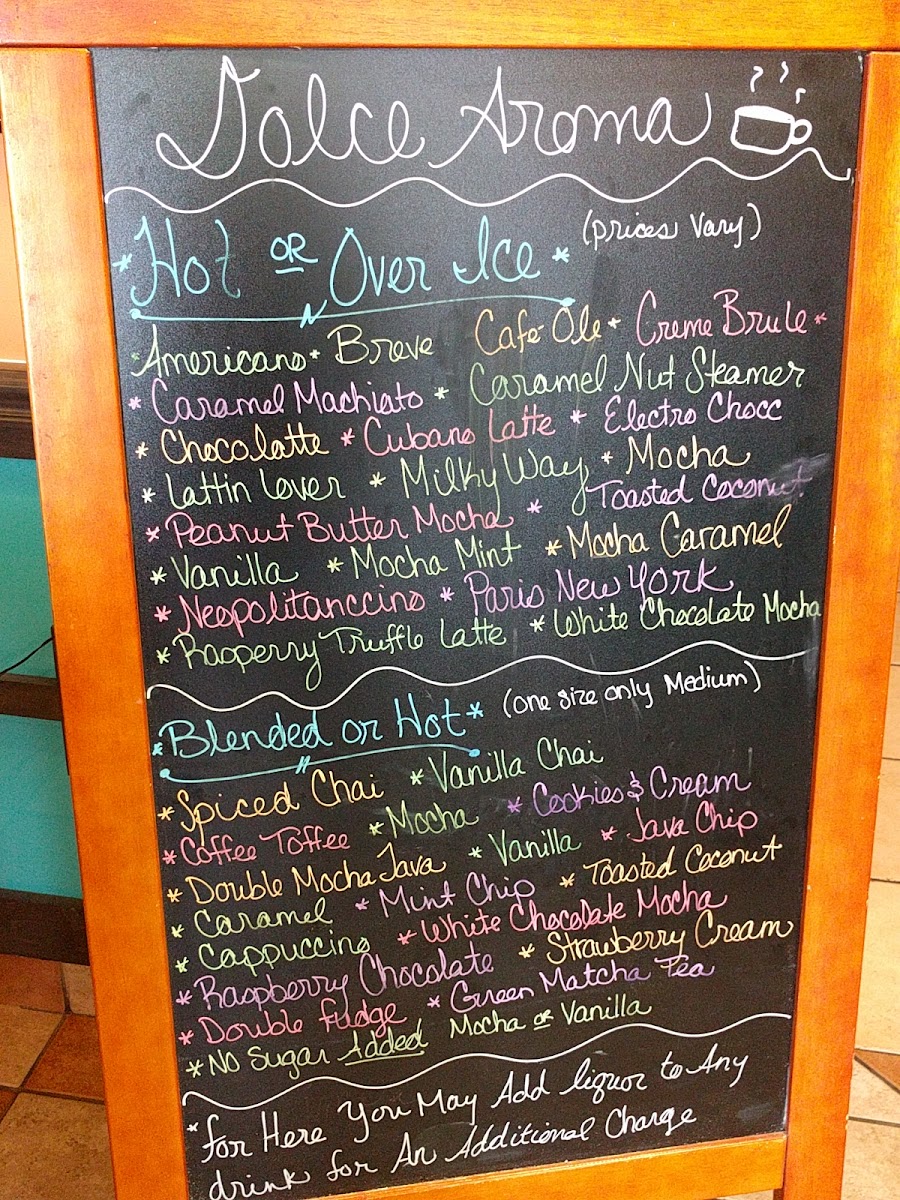 Dolce Aroma
*Hot OR Over Ice* (prices vary)
*Americano* Breve Cafe Ole* Creme Brule*
*Caramel Machiato* Caramel Nut Steamer
*Chocolatte *Cubano Latte * Electro Chocc
*Lattin Lover * Milky Way * Mocha
*Peanut Butter Mocha * Toasted Coconut
*Vanilla *Mocha Mint *Mocha Caramel
*Neopolitanccino *Paris New York
*Rasperry Truffle Latte *White Chocolate Mocha
*Blended or Hot* (one size only Medium)
*Spiced Chai *Vanilla Chai
*Coffee Toffee *Mocha *Cookies & Cream
*Double Mocha Java *Vanilla *Java Chip
*Caramel *Mint Chip *Toasted Coconut
*Cappuccino *White Chocolate Mocha
*Raspberry Chocolate *Strawberry Cream
*Double Fudge *Green Matcha Tea
*No Sugar Added Mocha or Vanilla
*For Here You May Add liquor to Any
drink for An Additional Charge